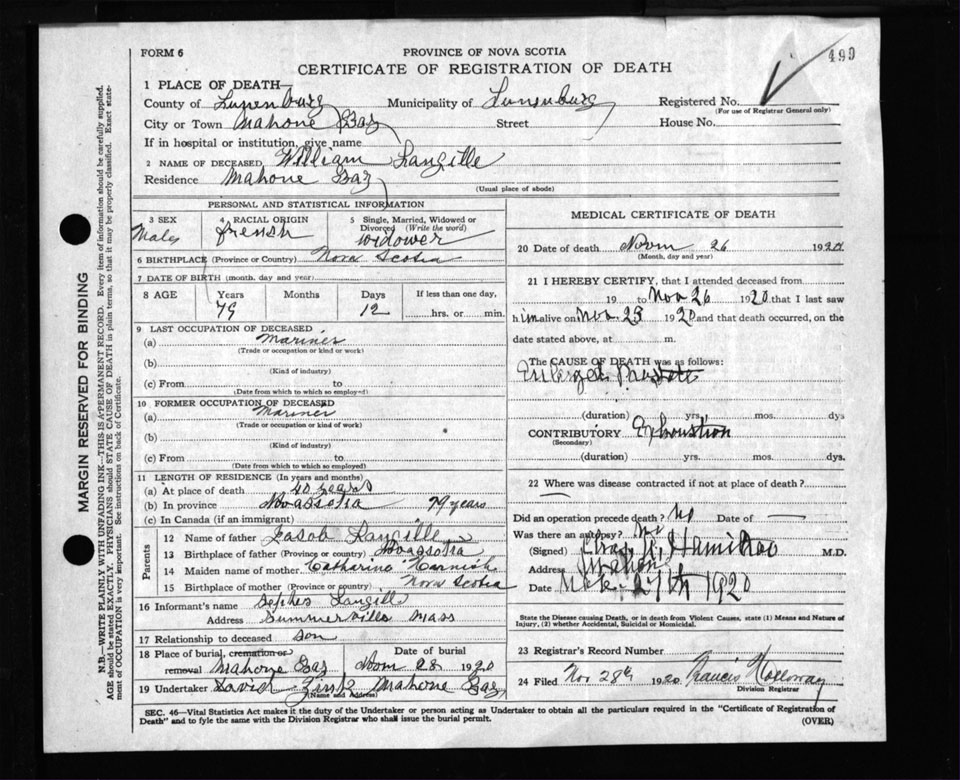 FORM 6
PROVINCE OF NOVA SCOTIA
499
CERTIFICATE OF REGISTRATION OF DEATH
1 PLACE OF DEATH
County of Lunenburg Municipality of Lunenburg Registered No.
(For use of Registrar General only)
City or Town Mahone Bay Street House No.
If in hospital or institution, give name
2 NAME OF DECEASED William Langille
Residence Mahone Bay
(Usual place of abode)
PERSONAL AND STATISTICAL INFORMATION
3 SEX 4 RACIAL ORIGIN 5 Single, Married, Widowed or Divorced (Write the word)
Male french widower
6 BIRTHPLACE (Province or Country) Nova Scotia
7 DATE OF BIRTH (month, day and year)
8 AGE Years Months Days If less than one day,
79 12 hrs. or min.
9 LAST OCCUPATION OF DECEASED
(a) Mariner
(Trade or occupation or kind or work)
(b)
(Kind of industry)
(c) From to
(Date from which to which so employed)
10 FORMER OCCUPATION OF DECEASED
(a) Mariner
(Trade or occupation or kind or work)
(b)
(Kind of industry)
(c) From to
(Date from which to which so employed)
11 LENGTH OF RESIDENCE (In years and months)
(a) At place of death 40 years
(b) In province Novascotia 79 years
(c) In Canada (if an immigrant)
Parents
12 Name of father Jacob Langille
13 Birthplace of father (Province or country) Novascotia
14 Maiden name of mother Catharina Harnish
15 Birthplace of mother (Province or country) Nova Scotia
16 Informant's name Langille
Address Summerville Mass
17 Relationship to deceased son
18 Place of burial, cremation or removal Mahone Bay Date of burial Novm 28 1920
19 Undertaker David Mahone Bay
(Name and Address)
MEDICAL CERTIFICATE OF DEATH
20 Date of death Novm 26 1920
(Month, day and year)
21 I HEREBY CERTIFY, that I attended deceased from
19 to Nov 26 1920 that I last saw
him alive on Nov. 23 1920 and that death occurred, on the
date stated above, at m.
The CAUSE OF DEATH was as follows:
Enlarged Prostate
(duration) yrs. mos. dys
CONTRIBUTORY Exhaustion
(Secondary)
(duration) yrs. mos. dys.
22 Where was disease contracted if not at place of death?
Did an operation precede death? No Date of
Was there an autopsy? No
(Signed) Hamilton M.D.
Address Mahone
Date 27th 1920
State the Disease causing Death, or in death from Violent Causes, state (1) Means and Nature of
Injury, (2) whether Accidental, Suicidal or Homicidal.
23 Registrar's Record Number
24 Filed Nov 28th 1920 Francis Holloway
Division Registrar
SEC. 46—Vital Statistics Act makes it the duty of the Undertaker or person acting as Undertaker to obtain all the particulars required in the "Certificate of Registration of
Death" and to fyle the same with the Division Registrar who shall issue the burial permit.
(OVER)
MARGIN RESERVED FOR BINDING
N.B.—WRITE PLAINLY WITH UNFADING INK—THIS IS A PERMANENT RECORD. Every item of information should be carefully supplied.
AGE should be stated EXACTLY. PHYSICIANS should STATE CAUSE OF DEATH in plain terms, so that it may be properly classified. Exact state-
ment of OCCUPATION is very important. See instructions on back of Certificate.